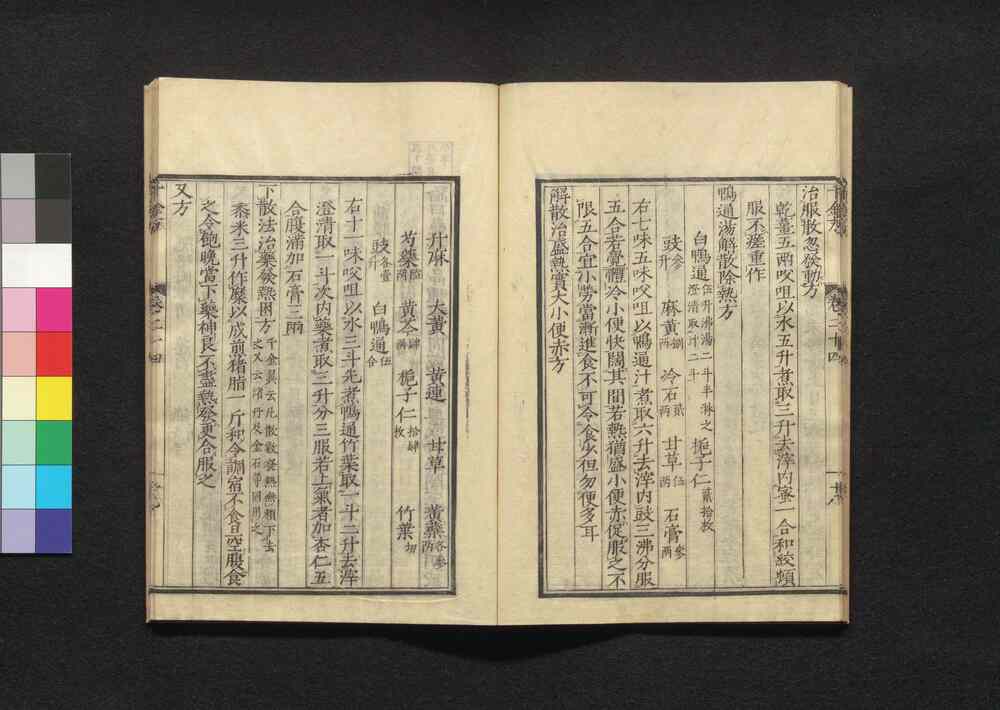 治服散忽發動方
乾薑五兩㕮咀以水五升煮取三升去滓內蜜一合和絞頓
服不瘥重作
鴨通湯解散除熱方
白鴨通伍升沸湯二斗半淋之澄清取汁二斗 梔子仁貳拾枚
豉參升 麻黃捌兩 冷石貳兩 甘草伍兩 石膏參兩
右七味五味㕮咀以鴨通汁煮取六升去滓內豉三沸分服
五合若覺體冷小便快闊其間若熱猶盛小便赤促服之不
限五合宜小勞當漸進食不可令食少但勿便多耳
解散治盛熱實大小便赤方
升麻 大黃 黃連 甘草 黃蘗各參兩
芍藥陸兩 黃芩肆兩 梔子仁拾肆枚 竹葉切
豉各壹升 白鴨通伍合
右十一味㕮咀以水三斗先煮鴨通竹葉取一斗二升去滓
澄清取一斗次內藥煮取三升分三服若上氣者加杏仁五
合腹滿加石膏三兩
下散法治藥發熱困方千金翼云凡散數發熱無賴下去之又云諸丹及金石等同用之
黍米三升作糜以成煎豬脂一斤和令調宿不食旦空腹食
之令飽晚當下藥神良不盡熱發更合服之
又方
卷二十四